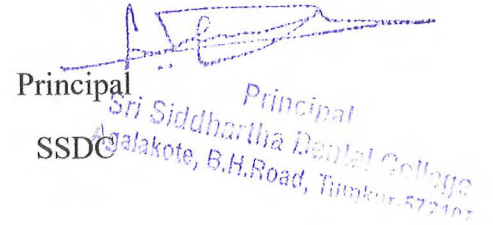 Principal
SSDC
Principal
Sri Siddhartha Dental College
Agalakote, B.H.Road, Tumkur-572107